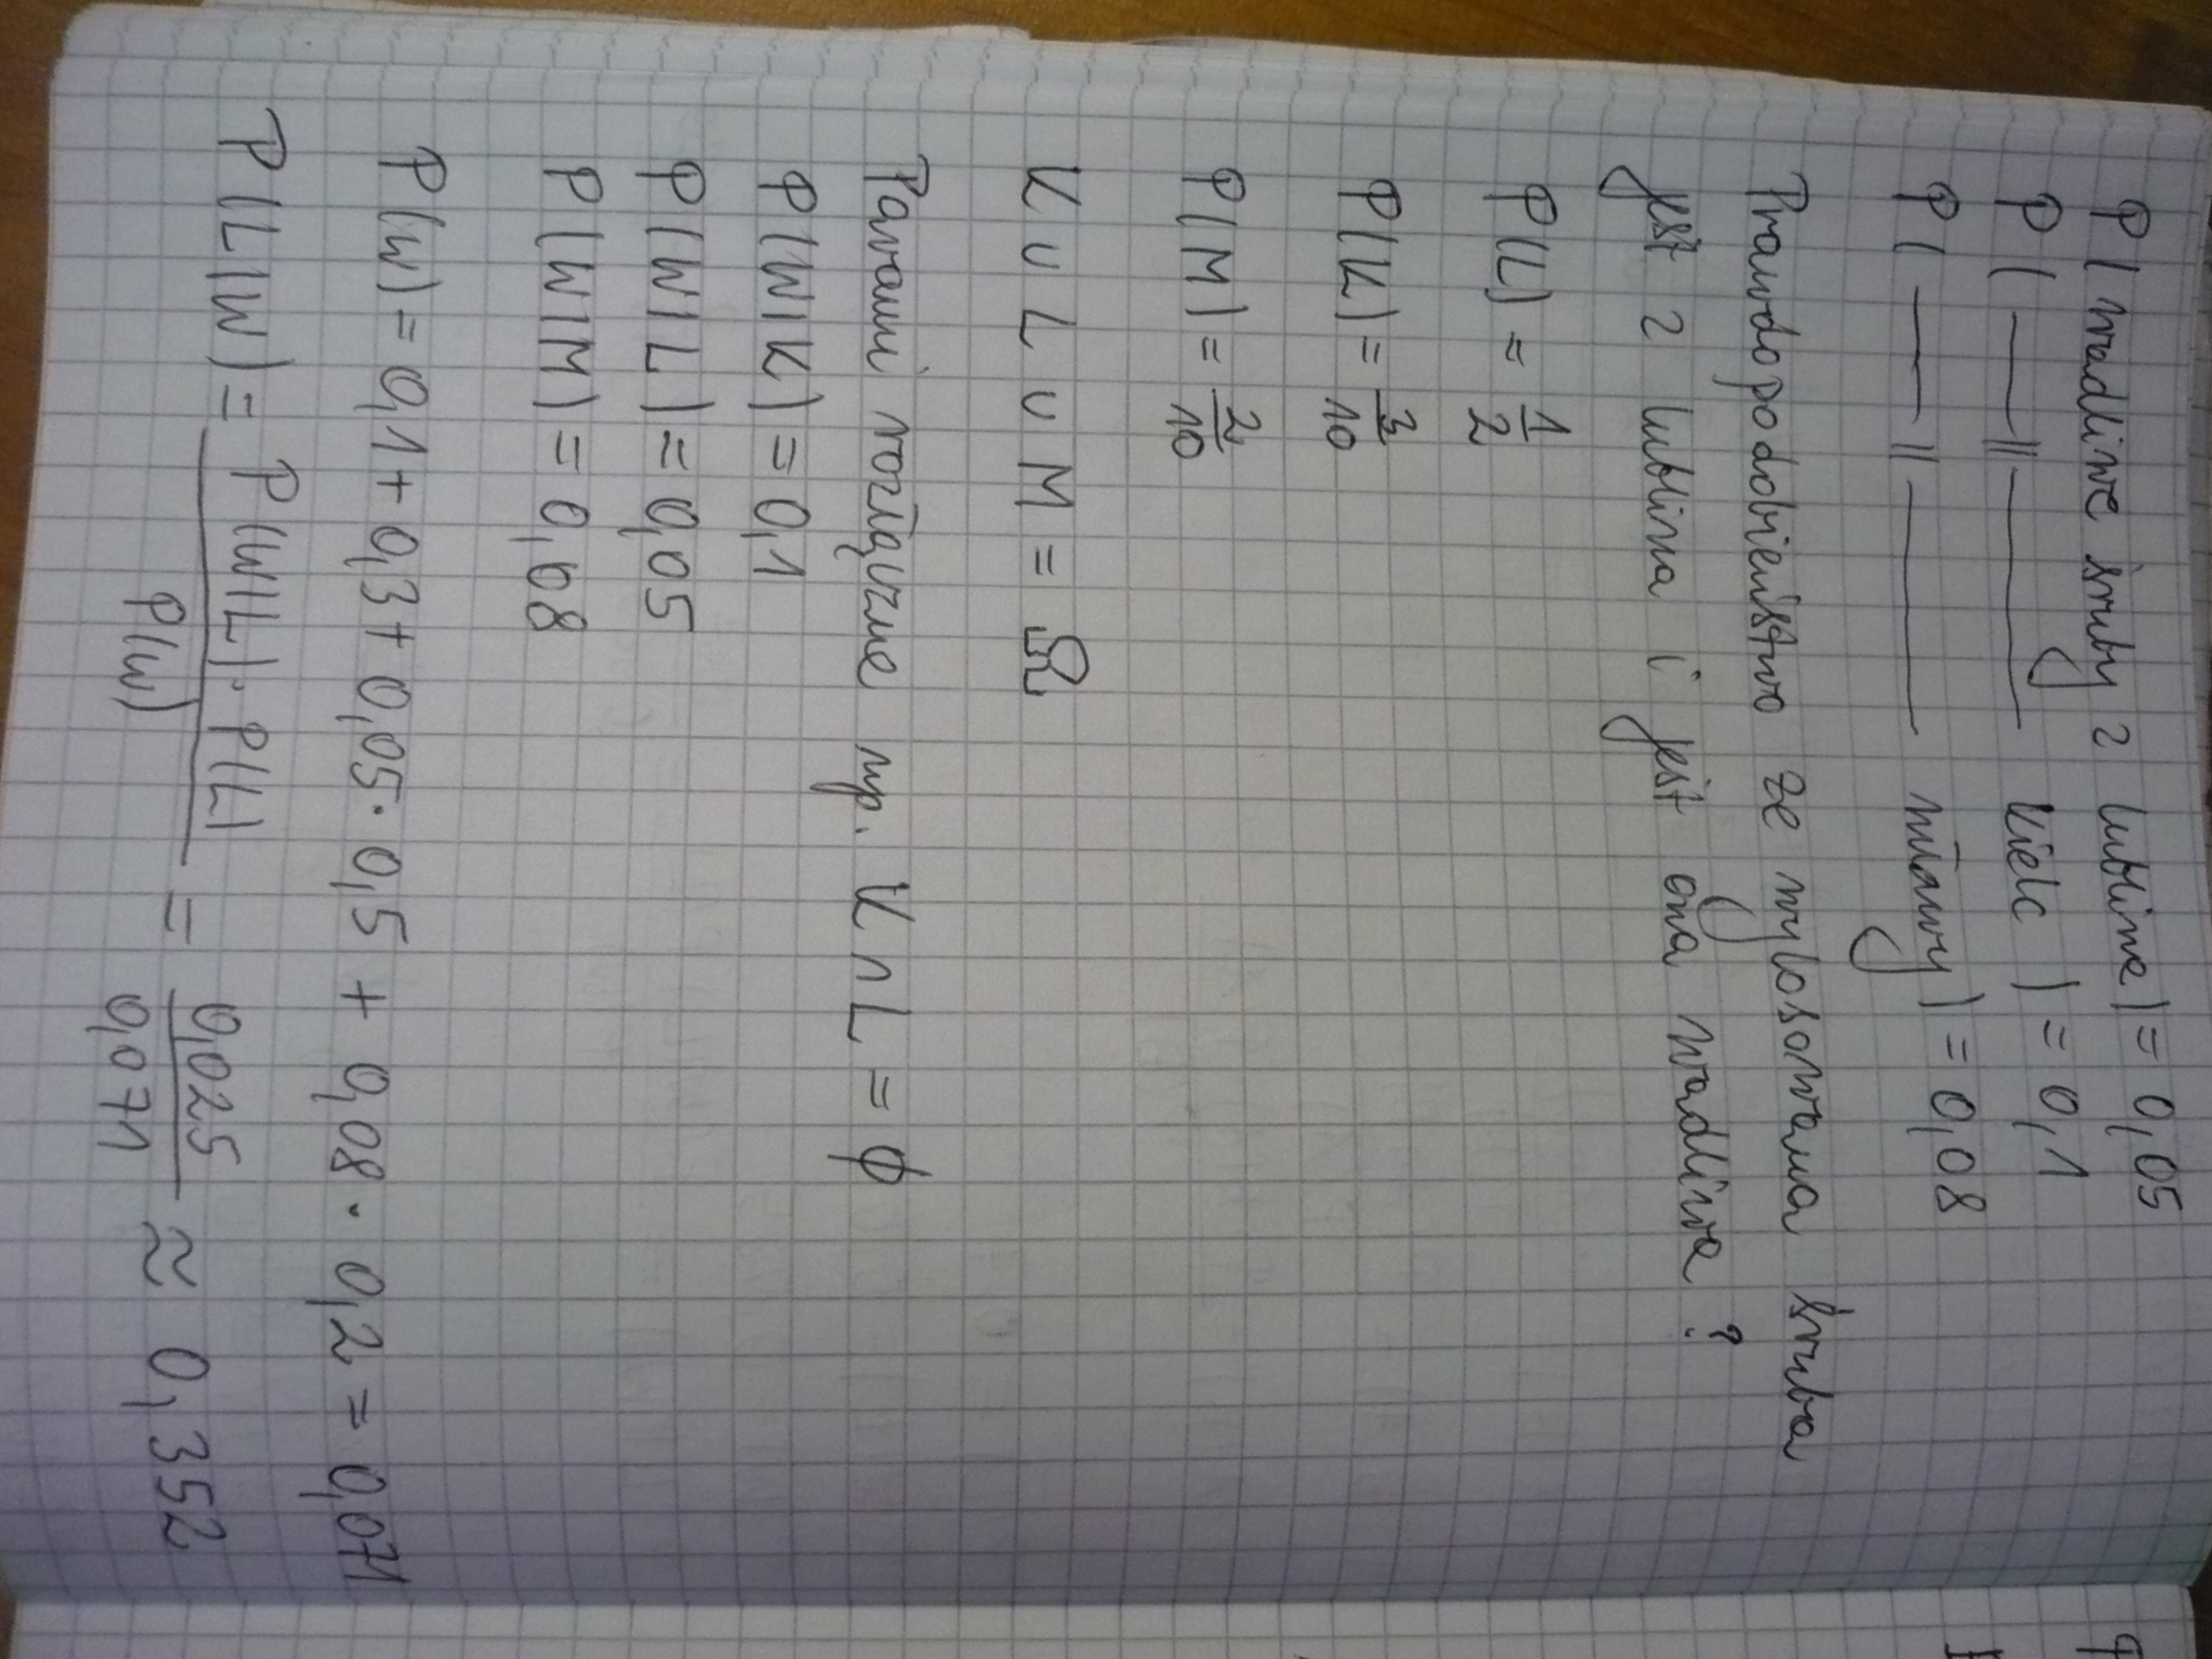 P ( wadliwe śruby z lublina ) = 0,05
P ( —— || —— Kielc ) = 0,1
P ( —— || —— mławy ) = 0,08
Prawdopodobieństwo że wylosowana śruba
jest z lublina i jest ona wadliwa ?
P(L) = 1/2
P(K) = 3/10
P(M) = 2/10
K ∪ L ∪ M = Ω
Parami rozłączne np. K ∩ L = ∅
P(W|K) = 0,1
P(W|L) = 0,05
P(W|M) = 0,08
P(W) = 0,1 + 0,3 + 0,05 · 0,5 + 0,08 · 0,2 = 0,071
P(L|W) = P(W|L) · P(L) / P(W) = 0,025 / 0,071 ≈ 0,352